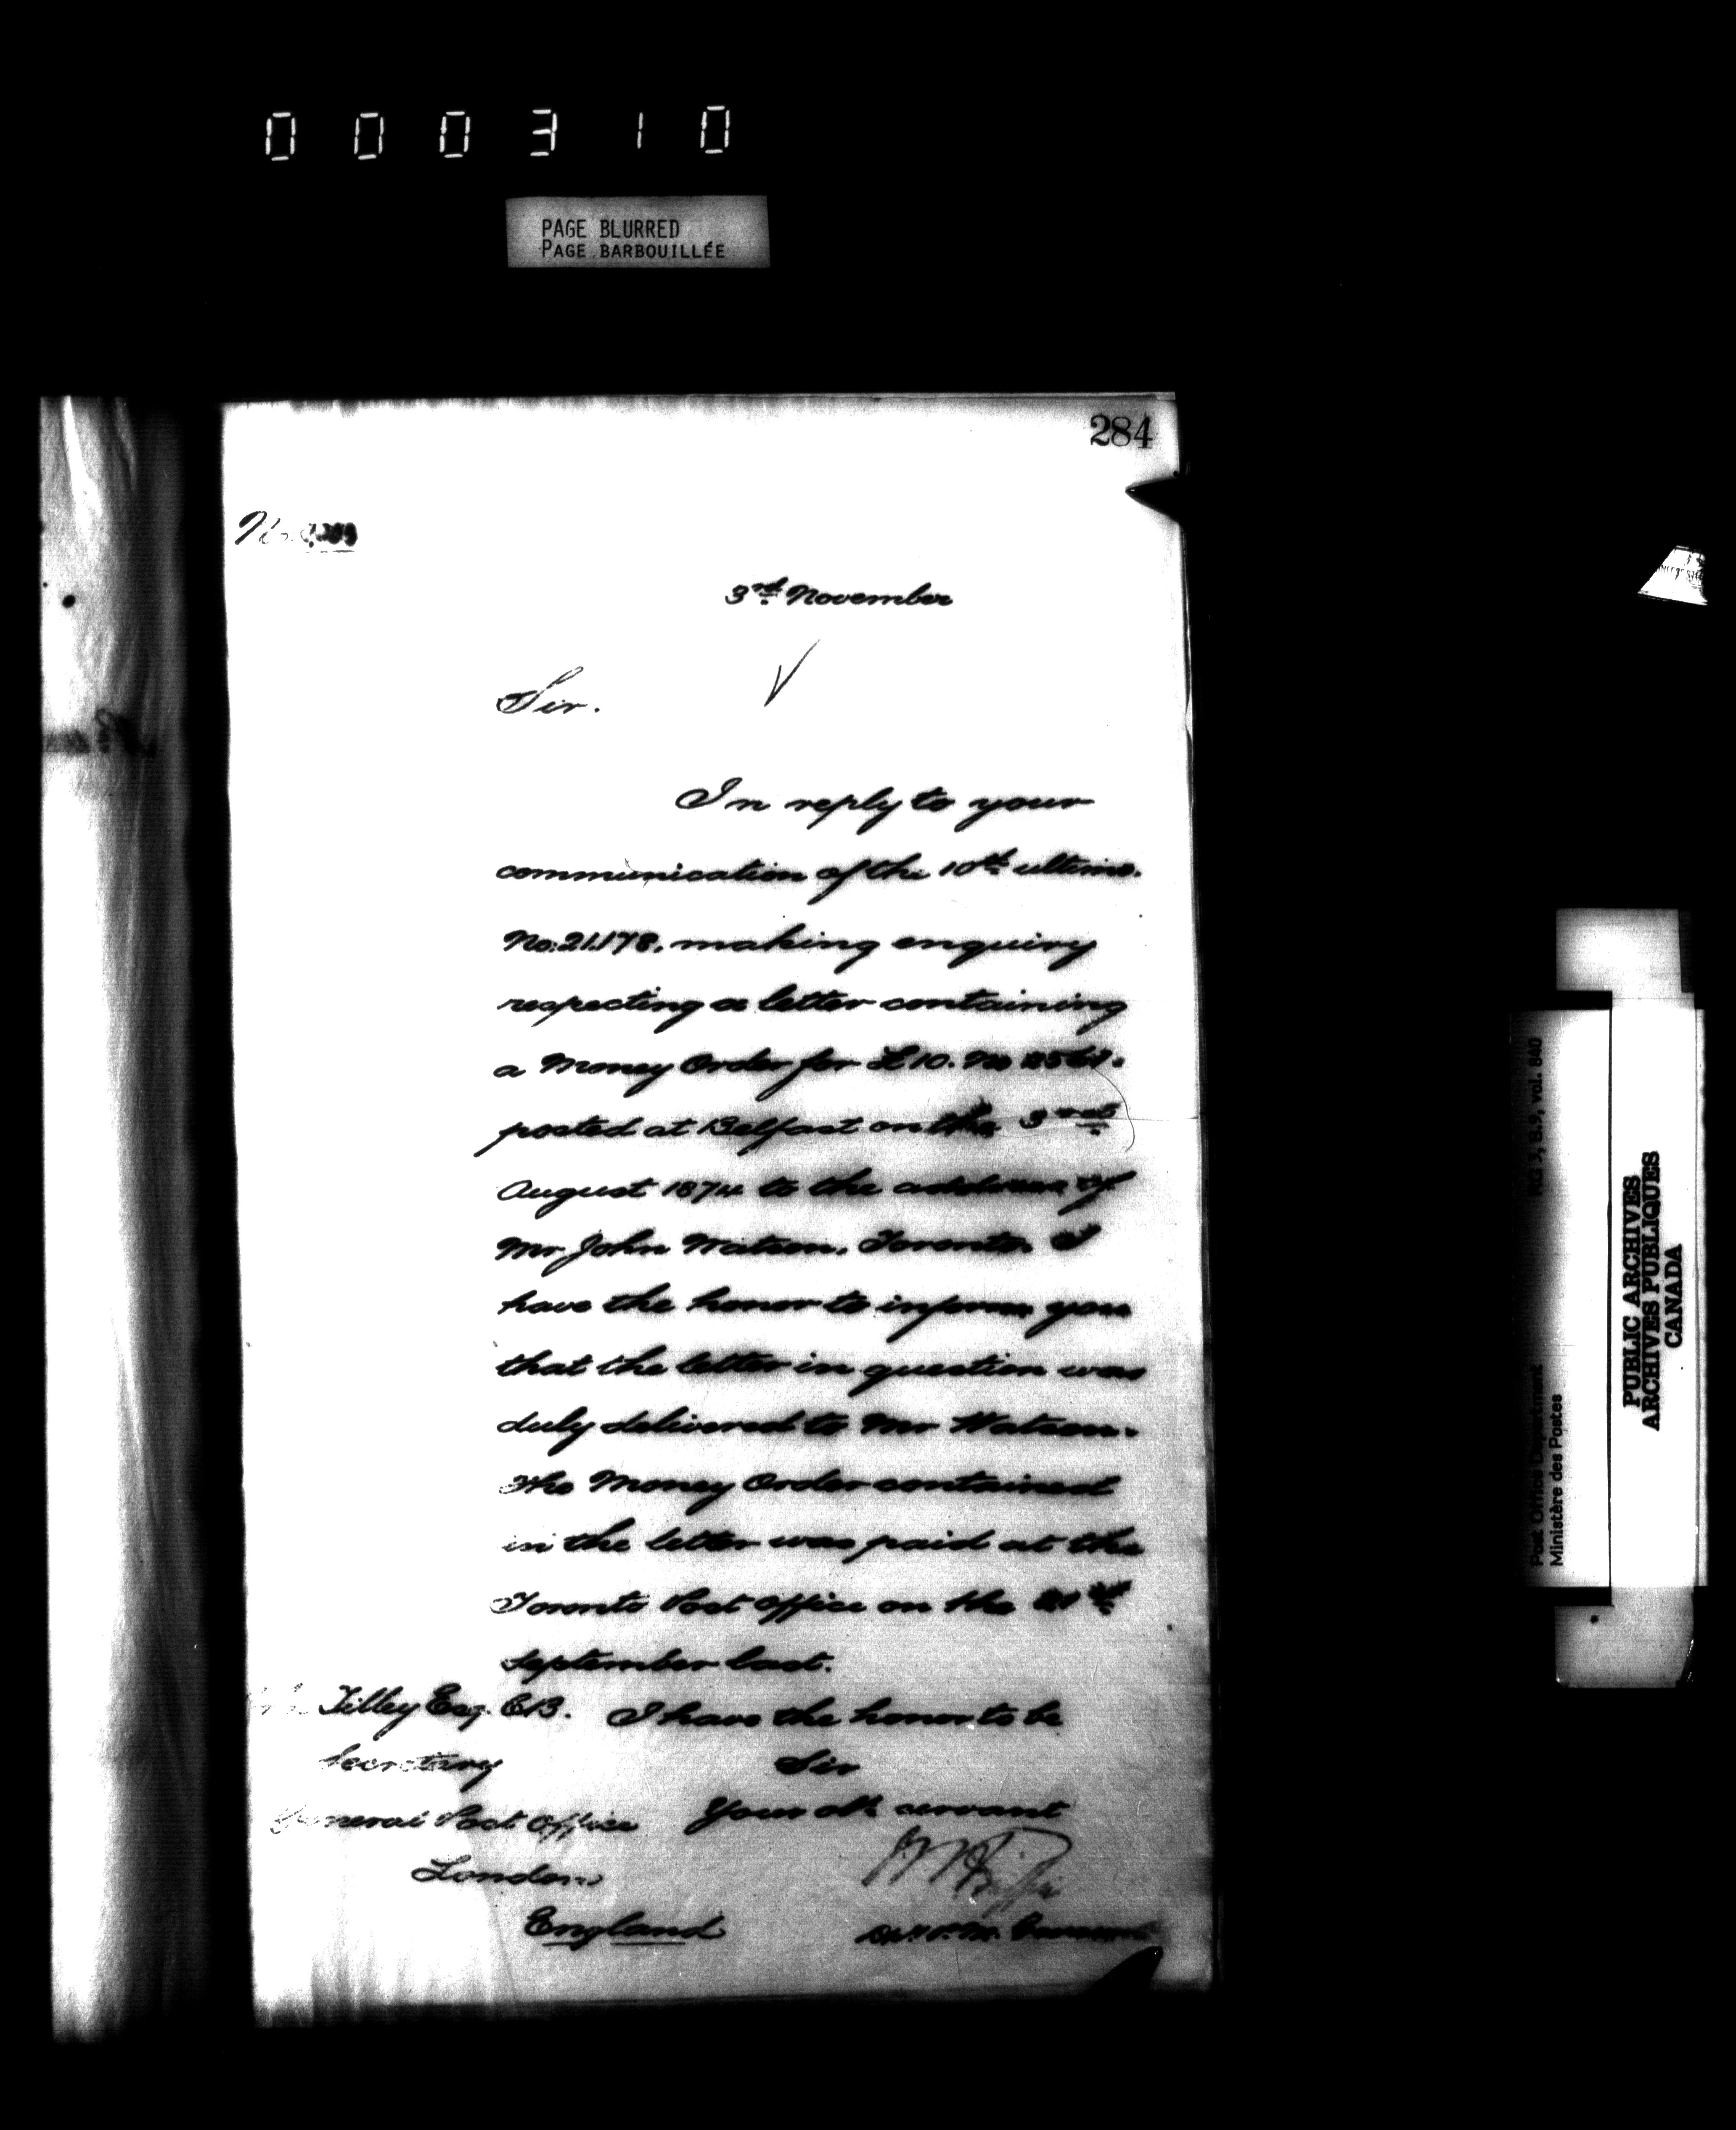 000310
PAGE BLURRED
PAGE BARBOUILLÉE
284
No.
3rd November
Sir.
In reply to your
communication of the 10th ultimo.
No. 21.178, making enquiry
respecting a letter containing
a Money Order for £10. No
posted at Belfast on the 3rd
August 1874 to the address of
Mr John Watson, Toronto. I
have the honor to inform you
that the letter in question was
duly delivered to Mr Watson.
The Money Order contained
in the letter was paid at the
Toronto Post Office on the 21st
September last.
I have the honor to be
Sir
Your obt servant
Tilley Esq. C.B.
Secretary
General Post Office
London
England
RG 3, B.9, vol. 840
Post Office Department
Ministère des Postes
PUBLIC ARCHIVES
ARCHIVES PUBLIQUES
CANADA